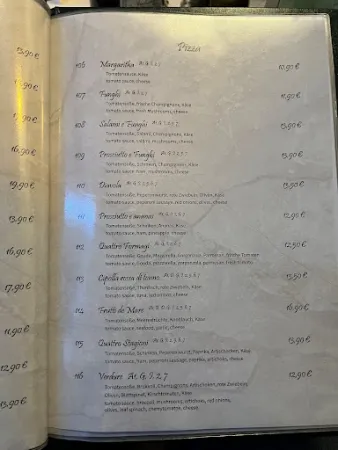 Pizza
106 Margaritha 10,90 €
Tomatensoße, Käse
tomato sauce, cheese
107 Funghi 11,90 €
Tomatensoße, frische Champignons, Käse
tomato sauce, fresh mushrooms, cheese
108 Salami e Funghi 13,90 €
Tomatensoße, Salami, Champignons, Käse
tomato sauce, salami, mushrooms, cheese
109 Prosciutto e Funghi 13,90 €
Tomatensoße, Schinken, Champignons, Käse
tomato sauce, ham, mushrooms, cheese
110 Diavola 13,90 €
Tomatensoße, Peperoniwurst, rote Zwiebeln, Oliven, Käse
tomato sauce, peperoni sausage, red onions, olives, cheese
111 Prosciutto e ananas 12,90 €
Tomatensoße, Schinken, Ananas, Käse
tomato sauce, ham, pineapple, cheese
112 Quattro Formaggi 12,50 €
Tomatensoße, Gouda, Mozzarella, Gorgonzola, Parmesan
tomato sauce, gouda, mozzarella, gorgonzola, parmesan
113 Cipolla rossa di tonno 13,50 €
Tomatensoße, Thunfisch, rote Zwiebeln, Käse
tomato sauce, tuna, red onions, cheese
114 Frutti de Mare 16,90 €
Tomatensoße, Meeresfrüchte, Knoblauch, Käse
tomato sauce, seafood, garlic, cheese
115 Quattro Stagioni 13,90 €
Tomatensoße, Schinken, Peperoniwurst, Paprika, Artischocken, Käse
tomato sauce, ham, peperoni sausage, paprika, artichoke, cheese
116 Verdure A1, G, 5, 2, 7 12,90 €
Tomatensoße, Brokkoli, Champignons, Artischocken, rote Zwiebeln,
Oliven, Blattspinat, Kirschtomaten, Käse
tomato sauce, broccoli, mushrooms, artichoke, red onions,
olives, leaf spinach, cherry tomatoes, cheese
16,90 €
19,90 €
13,90 €
16,90 €
17,90 €
11,90 €
12,90 €
13,90 €